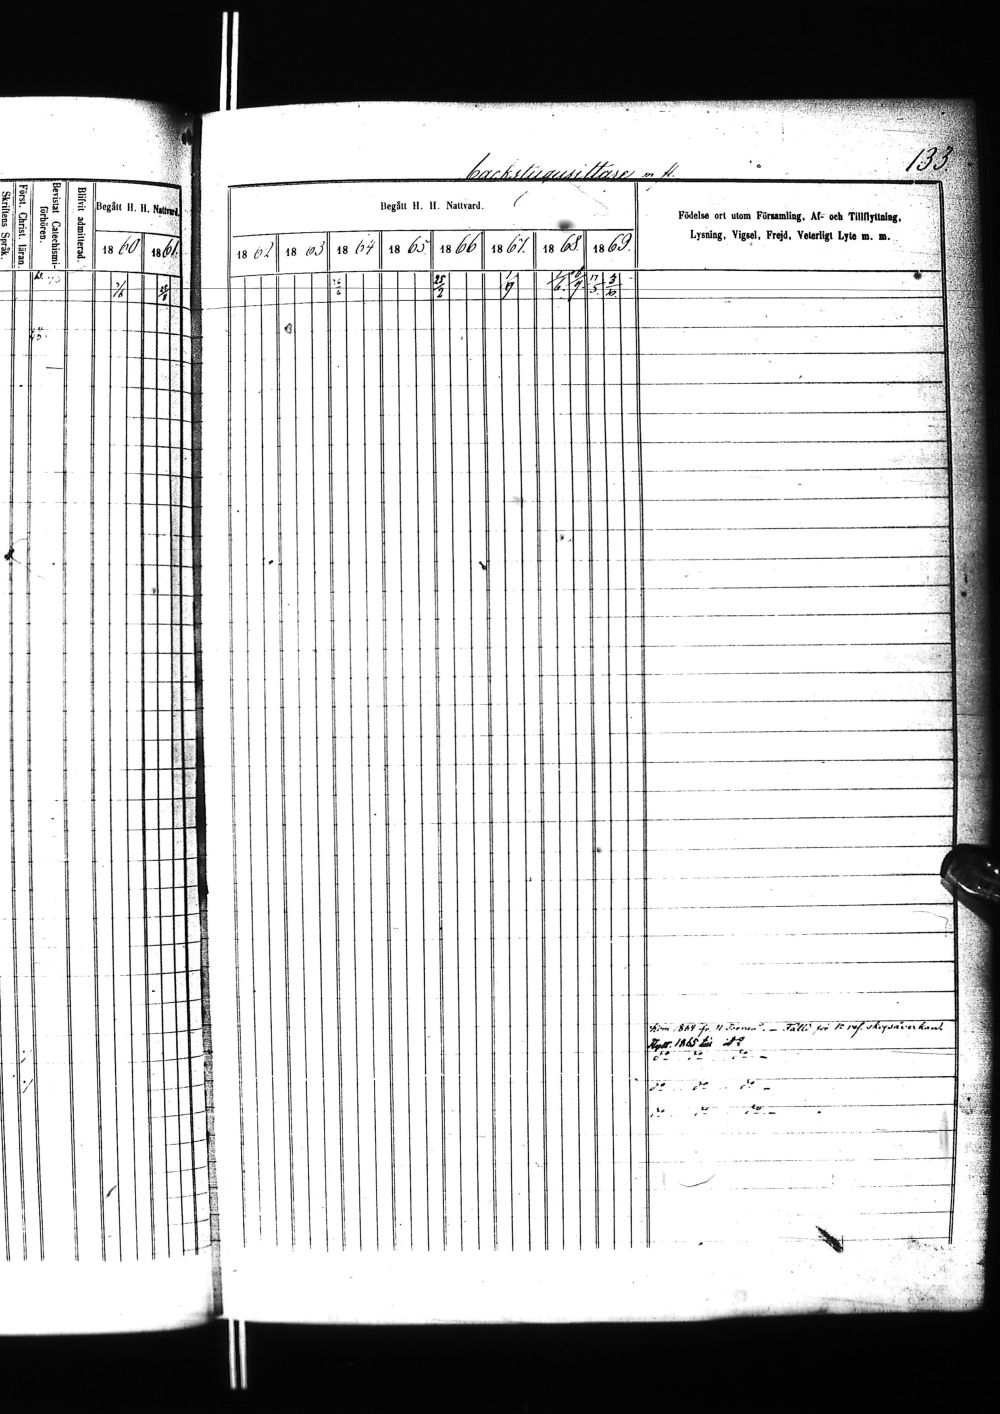 133.
Backstugusittare m. fl.
Skriftens Språk.
Först. Christ. läran.
Bevistat Catechismi-
förhören.
Blifvit admitterad.
Begått H. H. Nattvard.
1860 1861.
Begått H. H. Nattvard.
1862 1863 1864 1865 1866 1867. 1868. 1869.
Födelse ort utom Församling, Af- och Tillflyttning,
Lysning, Vigsel, Frejd, Veterligt Lyte m. m.
25/2 1/9 17/5 3/10
Kom 1864 fr. — för skogsåverkan.
Flytt. 1865 till
do do do —
do do do —
do do do —